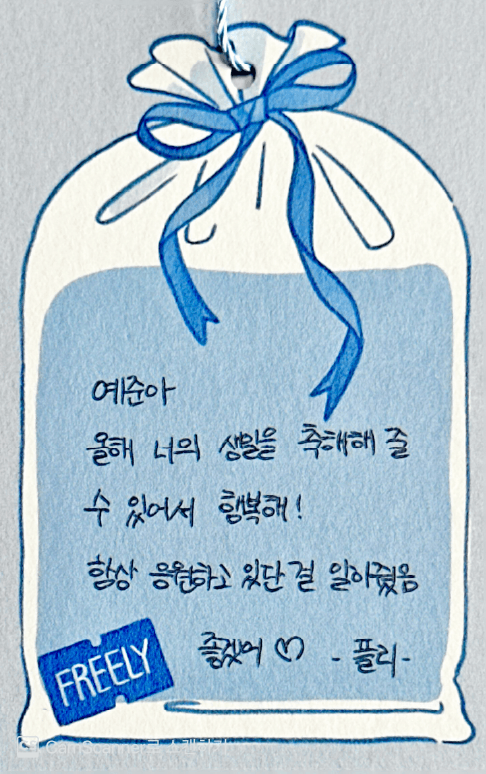 예준아
올해 너의 생일을 축해해 줄
수 있어서 행복해!
항상 응원하고 있단 걸 알아줬음
좋겠어 ♡ - 플리-
FREELY
CamScanner로 스캔하기